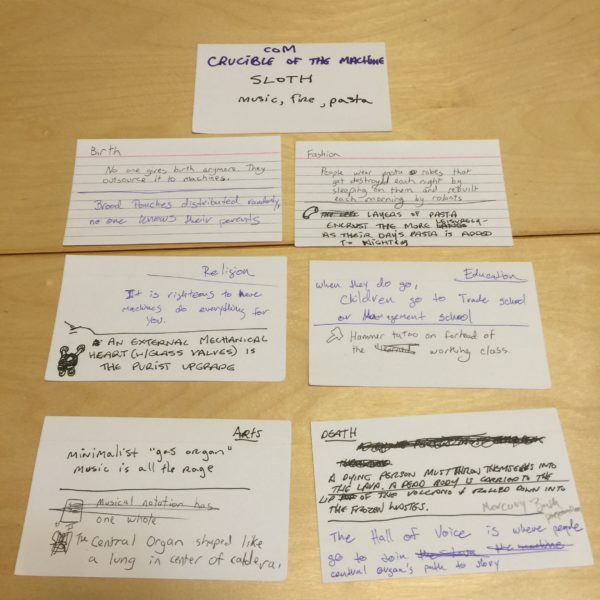 COM
CRUCIBLE OF THE MACHINE
SLOTH
music, fire, pasta
Birth
No one gives birth anymore. They
outsource it to machines.
Brood Pouches distributed randomly,
no one knows their parents
Fashion
People wear pasta robes that
get destroyed each night by
sleeping on them and rebuilt
each morning by robots
LAYERS OF PASTA
ENCRUST THE MORE LEISURELY
AS THEIR DAYS PASTA IS ADDED
TO NIGHTLY
Religion
It is righteous to have
machines do everything for
you.
AN EXTERNAL MECHANICAL
HEART (W/GLASS VALVES) IS
THE PURIST UPGRADE
Education
when they do go,
Children go to Trade school
or Management school
Hammer tatoo on forhead of
the working class.
ARTS
minimalist "gas organ"
music is all the rage
Musical notation has
one whole
The Central Organ shaped like
a lung in center of caldera.
DEATH
A DYING PERSON MUST THROW THEMSELVES INTO
THE LAVA. A DEAD BODY IS CARRIED TO THE
LIP OF THE VOLCANO & ROLLED DOWN INTO
THE FROZEN WASTES.
Mercury
The Hall of Voice is where people
go to join the machine
central organ's path to glory